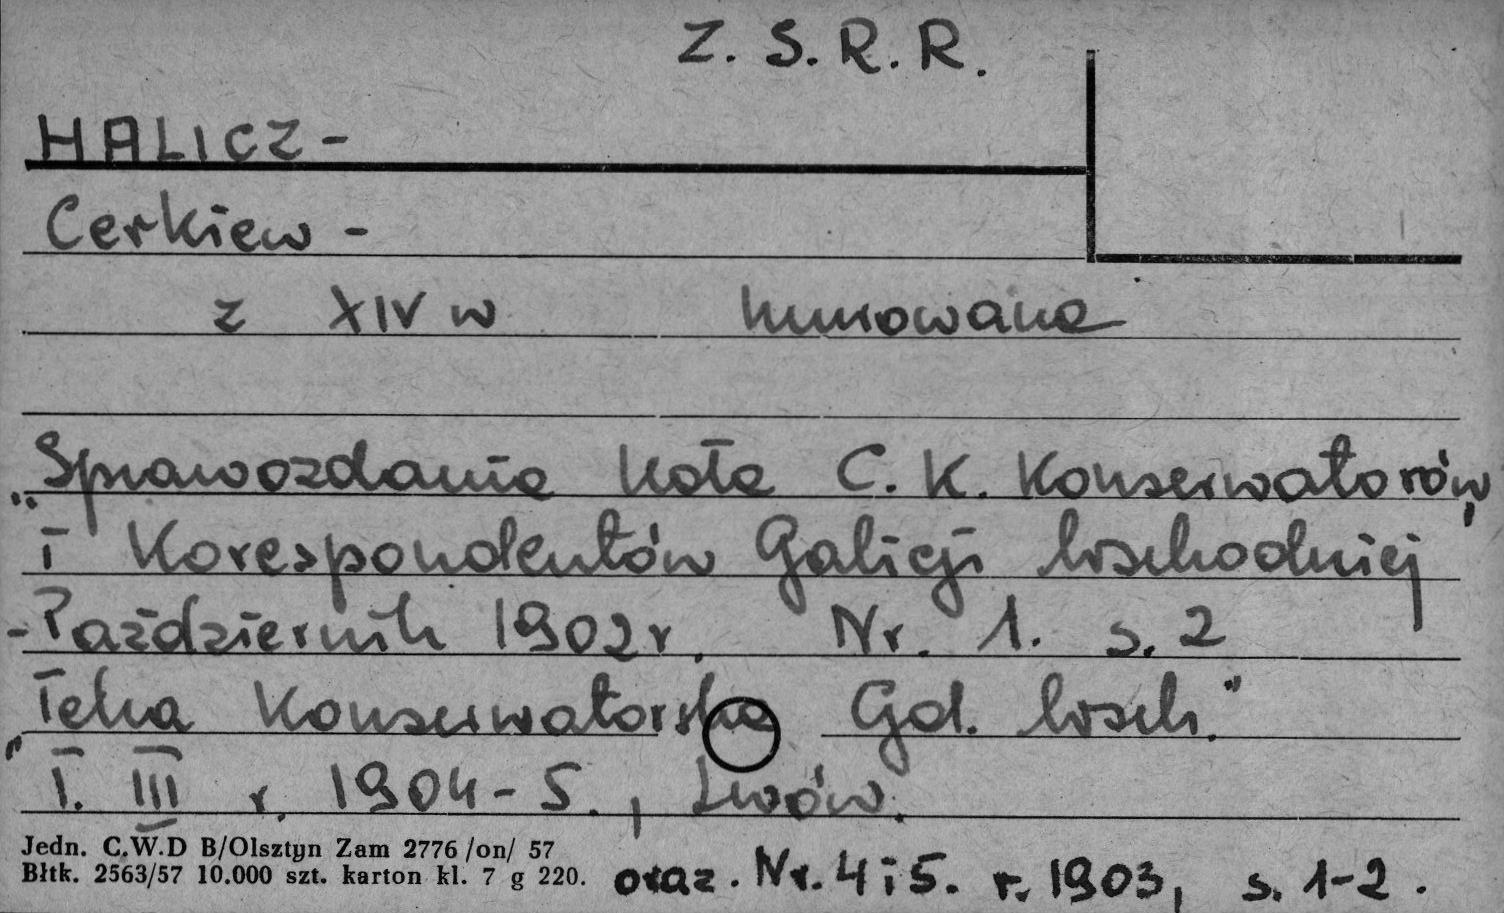 Z. S. R. R.
HALICZ -
Cerkiew -
z XIV w murowana
„Sprawozdania Koła C. K. Konserwatorów,
i Korespondentów Galicji wschodniej
- Październik 1902 r. Nr. 1. s. 2
„Teka Konserwatorska Gal. wsch."
T. III r. 1904-5., Lwów.
Jedn. C.W.D B/Olsztyn Zam 2776 /on/ 57
Błtk. 2563/57 10.000 szt. karton kl. 7 g 220.
oraz. Nr. 4 i 5. r. 1903, s. 1-2.